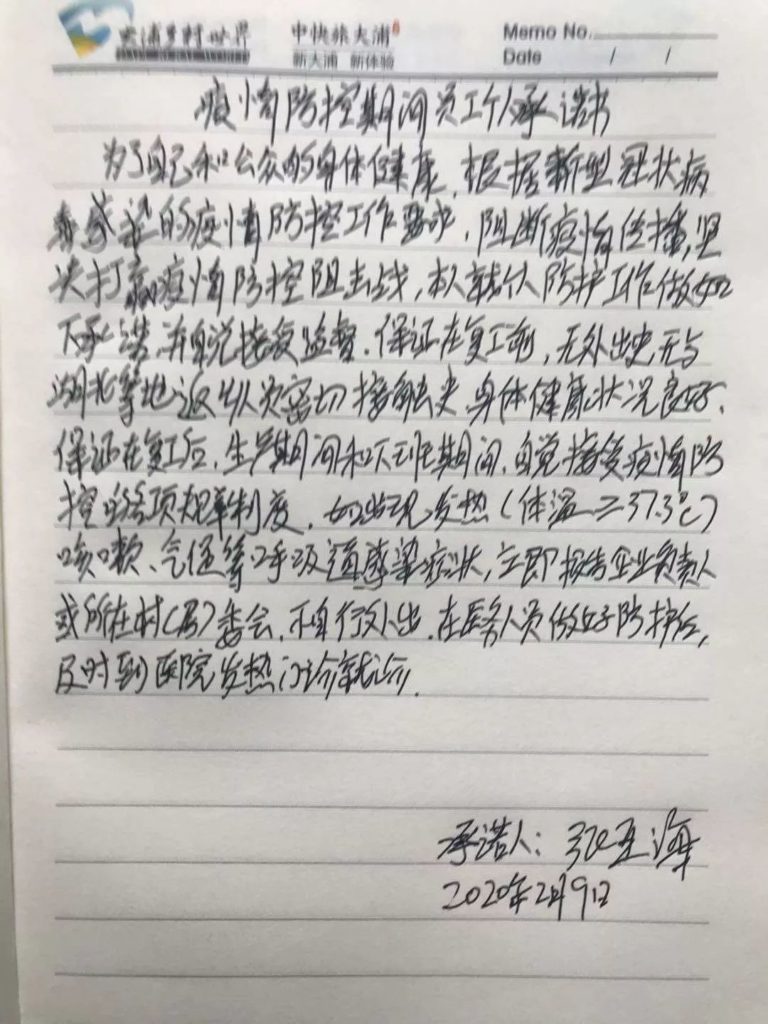 大浦乡村世界 中快旅大浦 Memo No.
新大浦 新体验 Date / /
疫情防控期间员工个人承诺书
为了自己和公众的身体健康，根据新型冠状病
毒感染的疫情防控工作要求，阻断疫情传播，坚
决打赢疫情防控阻击战，本人就个人防护工作做如
下承诺，并自觉接受监督。保证在复工前，无外出史，无与
湖北等地返乡人员密切接触史，身体健康状况良好。
保证在复工后，生产期间和下班期间，自觉接受疫情防
控的各项规章制度，如出现发热（体温≥37.3℃）
咳嗽、气促等呼吸道感染症状，立即报告企业负责人
或所在村（居）委会，不自行外出，在医务人员做好防护后，
及时到医院发热门诊就诊。
承诺人：张亚海
2020年2月9日